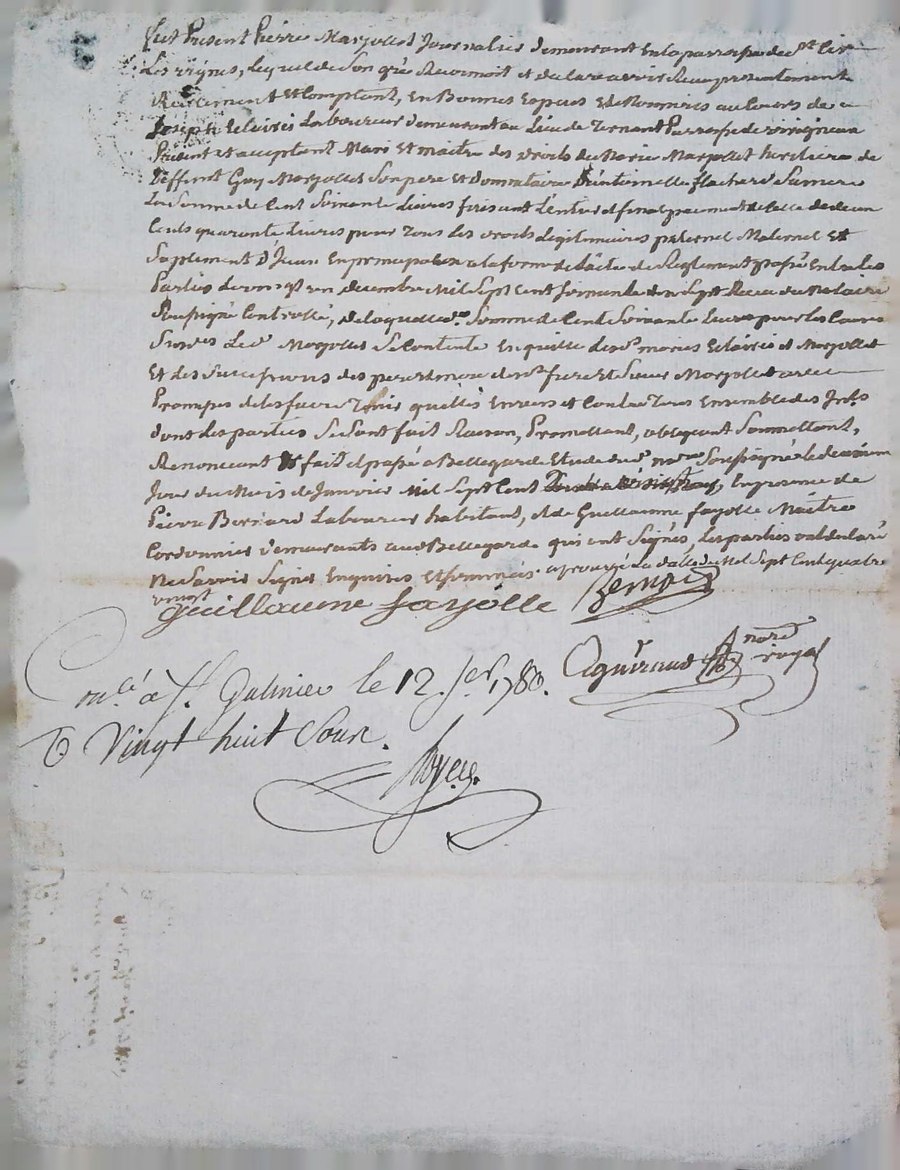 fut Present Pierre Marjollet Journalier demeurant En la parroisse de St Cir
Les vignes, Lequel de Son gré a Reconnoit et declare avoir Recu presentement
Reellement Et Comptant, En Bonnes Especes Et de Monnoies au Cours de
Joseph Laboureur demeurant au Lieu de Ternant Parroisse de virigneux
Present et acceptant Mari Et maitre des droits de Marie Marjollet heritiere de
Deffunt Guy Marjollet Son pere Et donnataire D'antoinette flachard Sa mere
La Somme de Cent Soixante Livres faisant L'entier et final payement de Celle de deux
Cents quarante Livres pour Tous Les droits Legitimaires paternel Maternel Et
Suplement d'Iceux En principal a la forme de L'acte de Reglement passé Entre Les
Parties Le vingt un decembre Mil Sept Cent Soixante dix Sept Recu du Notaire
Soussigné Controllé, de laquelle de Somme de Cent Soixante Livres pour les Causes
Susdes Le d Marjollet Se Contente En quitte des mariés et Marjollet
Et des Successions des pere et mere des frere Et Soeur Marjollet avec
Promesses de les faire Tenir quittes Envers et Contre Tous Ensemble des
dont Les parties Se Sont fait Raison, Promettant, obligeant Soumettant,
Renonceant fait et passé a Bellegarde Etude du d nore Soussigné Le dixieme
Jour du Mois de Janvier Mil Sept Cent En presence de
Pierre Bernard Laboureur habitant, et de Guillaume fayolle Maitre
Cordonnier demeurants aud Bellegarde qui ont Signés, Les parties ont declaré
Ne Savoir Signer Enquises Et Sommés approuvé La datte de Mil Sept Cent quatre
vingt
guillaume fayolle
Aguiraud nore royal
Conlé à St. Galmier le 12. Jer 1780.
Vingt huit Sous.